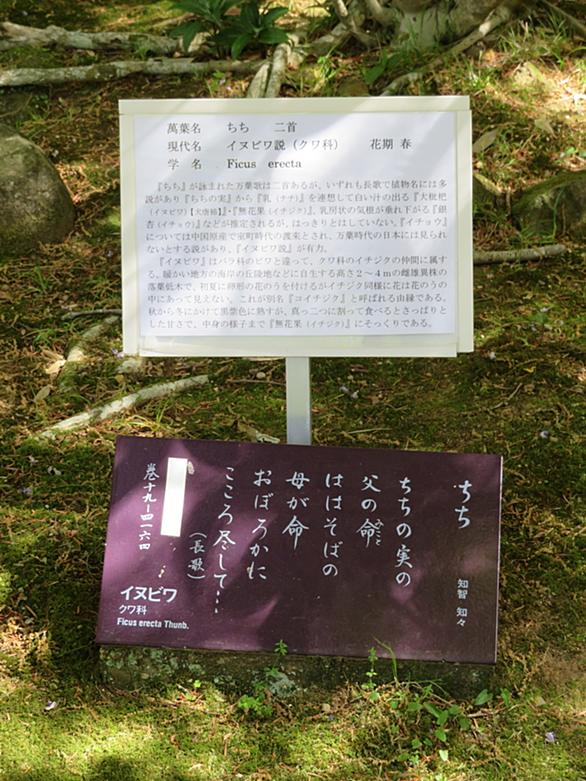 萬葉名　ちち　二首
現代名　イヌビワ説（クワ科）　花期 春
学　名　Ficus erecta
『ちち』が詠まれた万葉歌は二首あるが、いずれも長歌で植物名には多
説があり『ちちの実』から『乳（チチ）を連想して白い汁の出る『大枇杷
（イヌビワ）【犬唐柿】』・『無花果（イチジク）』、乳房状の気根が垂れ下がる『銀
杏（イチョウ）』などが推定されるが、はっきりとはしていない。『イチョウ』
については中国原産で室町時代の渡来とされ、万葉時代の日本には見られ
ないとする説があり、『イヌビワ説』が有力。
『イヌビワ』はバラ科のビワと違って、クワ科のイチジクの仲間に属す
る。暖かい地方の海岸の丘陵地などに自生する高さ2～4mの雌雄異株の
落葉低木で、初夏に卵形の花のうを付けるがイチジク同様に花は花のうの
中にあって見えない。これが別名『コイチジク』と呼ばれる由縁である。
秋から冬にかけて黒紫色に熟すが、真っ二つに割って食べるとさっぱりと
した甘さで、中身の様子まで『無花果（イチジク）』にそっくりである。
ちち　知智 知々
ちちの実の
父の命
みこと
ははそばの
母が命
おぼろかに
こころ尽して…
（長歌）
巻十九―四一六四
イヌビワ
クワ科
Ficus erecta Thunb.